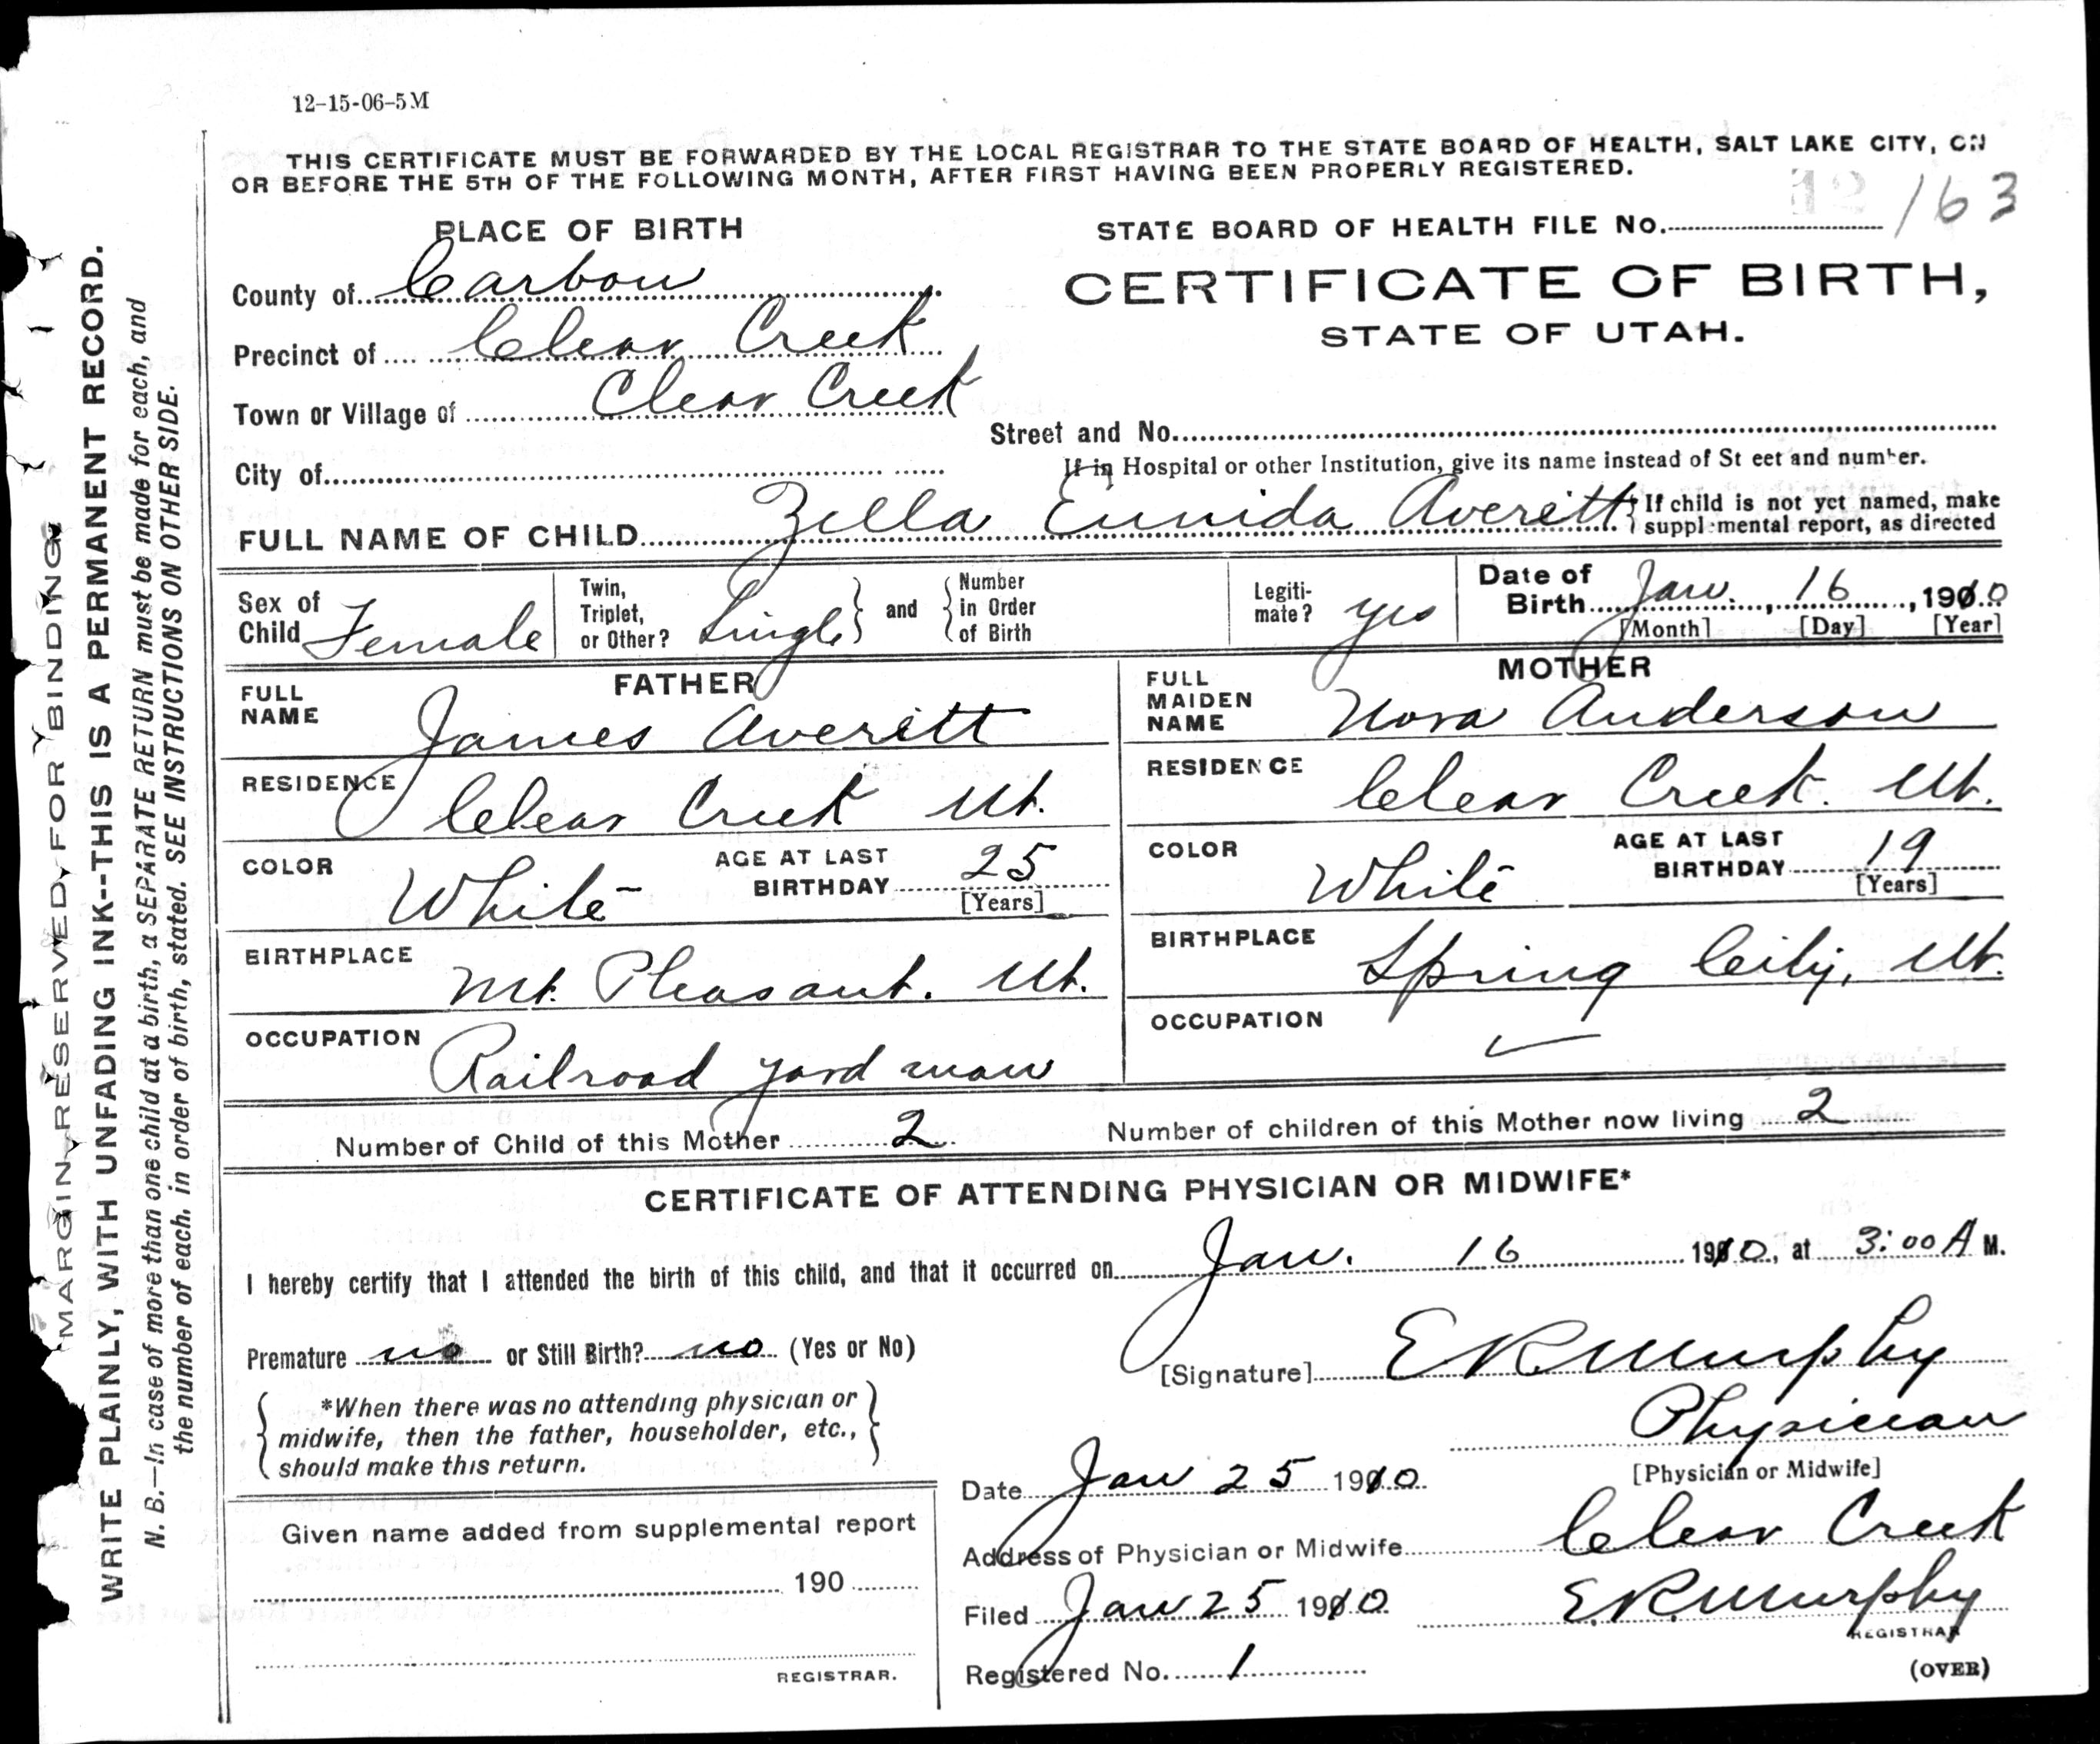 12-15-06-5M
THIS CERTIFICATE MUST BE FORWARDED BY THE LOCAL REGISTRAR TO THE STATE BOARD OF HEALTH, SALT LAKE CITY, ON
OR BEFORE THE 5TH OF THE FOLLOWING MONTH, AFTER FIRST HAVING BEEN PROPERLY REGISTERED.
PLACE OF BIRTH
STATE BOARD OF HEALTH FILE No. 163
County of Carbon
CERTIFICATE OF BIRTH,
STATE OF UTAH.
Precinct of Clear Creek
Town or Village of Clear Creek
Street and No.
City of
If in Hospital or other Institution, give its name instead of St eet and number.
FULL NAME OF CHILD Zella Eunida Averett { If child is not yet named, make
suppl mental report, as directed
Sex of
Child Female
Twin,
Triplet,
or Other? Single } and { Number
in Order
of Birth
Legiti-
mate? yes
Date of
Birth Jan. , 16 , 1910
[Month] [Day] [Year]
FATHER
FULL
NAME James Averett
RESIDENCE Clear Creek Ut.
COLOR White AGE AT LAST
BIRTHDAY 25
[Years]
BIRTHPLACE Mt. Pleasant. Ut.
OCCUPATION Railroad yard man
MOTHER
FULL
MAIDEN
NAME Nora Anderson
RESIDENCE Clear Creek. Ut.
COLOR White AGE AT LAST
BIRTHDAY 19
[Years]
BIRTHPLACE Spring City, Ut.
OCCUPATION
Number of Child of this Mother 2 Number of children of this Mother now living 2
CERTIFICATE OF ATTENDING PHYSICIAN OR MIDWIFE*
I hereby certify that I attended the birth of this child, and that it occurred on Jan. 16 1910, at 3:00 A M.
Premature no or Still Birth? no (Yes or No)
[Signature] E R Murphy
{ *When there was no attending physician or
midwife, then the father, householder, etc.,
should make this return. }
Physician
[Physician or Midwife]
Date Jan 25 1910
Address of Physician or Midwife Clear Creek
Filed Jan 25 1910 E.R. Murphy
REGISTRAR
Registered No. 1
(OVER)
Given name added from supplemental report
190
REGISTRAR.
MARGIN RESERVED FOR BINDING
WRITE PLAINLY, WITH UNFADING INK--THIS IS A PERMANENT RECORD.
N. B.—In case of more than one child at a birth, a SEPARATE RETURN must be made for each, and
the number of each, in order of birth, stated. SEE INSTRUCTIONS ON OTHER SIDE.